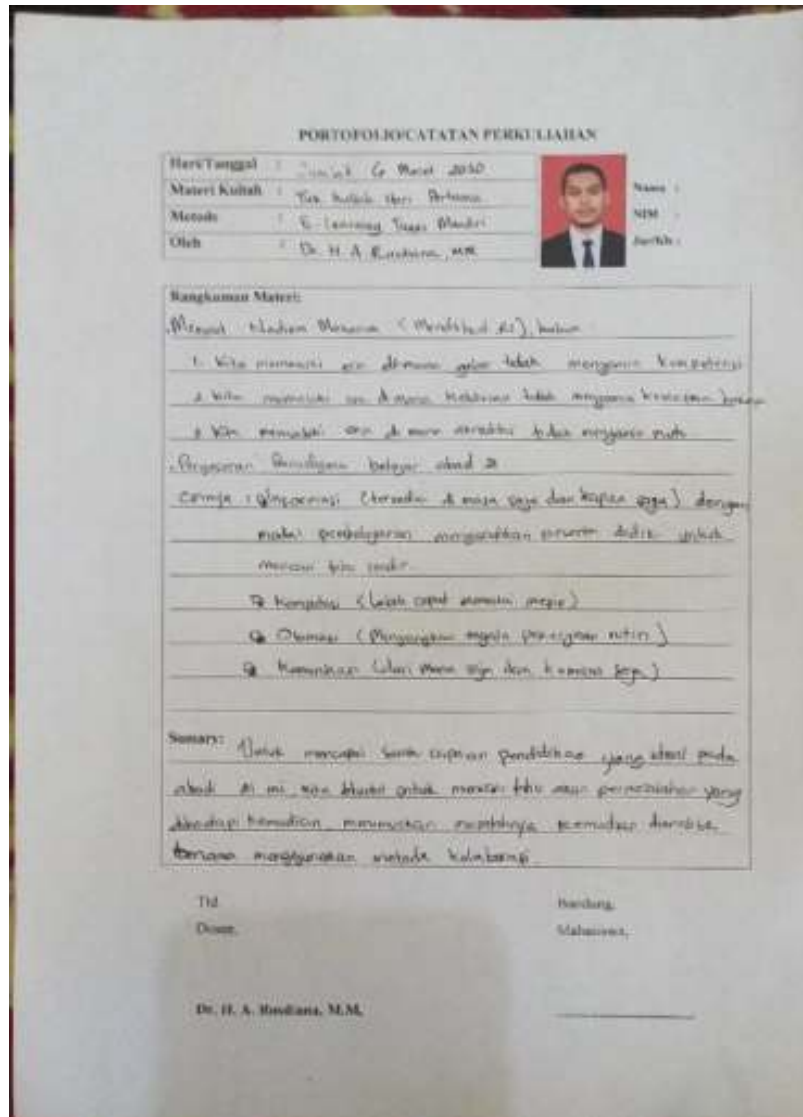 PORTOFOLIO/CATATAN PERKULIAHAN
Hari/Tanggal : 6 Maret 2020
Materi Kuliah : Kuliah Pertama
Metode : E-learning Tugas Mandiri
Oleh : Dr. H. A. Rusdiana, MM
Nama :
NIM :
Jur/Kls :
Rangkuman Materi:
Menurut Nadiem Makarim (Mendikbud RI),
1. Kita memasuki era di mana gelar tidak menjamin kompetensi
2. Kita memasuki era di mana kelulusan tidak menjamin kesiapan
3. Kita memasuki era di mana akreditasi tidak menjamin mutu
Pergeseran Paradigma belajar abad 21
Cirinya : Informasi (tersedia di mana saja dan kapan saja) dengan
model pembelajaran mengarahkan peserta didik untuk
mencari tahu sendiri
Komputasi (lebih cepat memakai mesin)
Otomasi (Menjangkau segala pekerjaan rutin)
Komunikasi (dari mana saja dan ke mana saja)
Sumary: Untuk mencapai suatu capaian pendidikan yang ideal pada
abad 21 ini, kita untuk mencari tahu akan permasalahan yang
dihadapi kemudian merumuskan masalahnya kemudian
bersama menggunakan metode kolaborasi
Ttd
Dosen,
Dr. H. A. Rusdiana, M.M,
Bandung,
Mahasiswa,